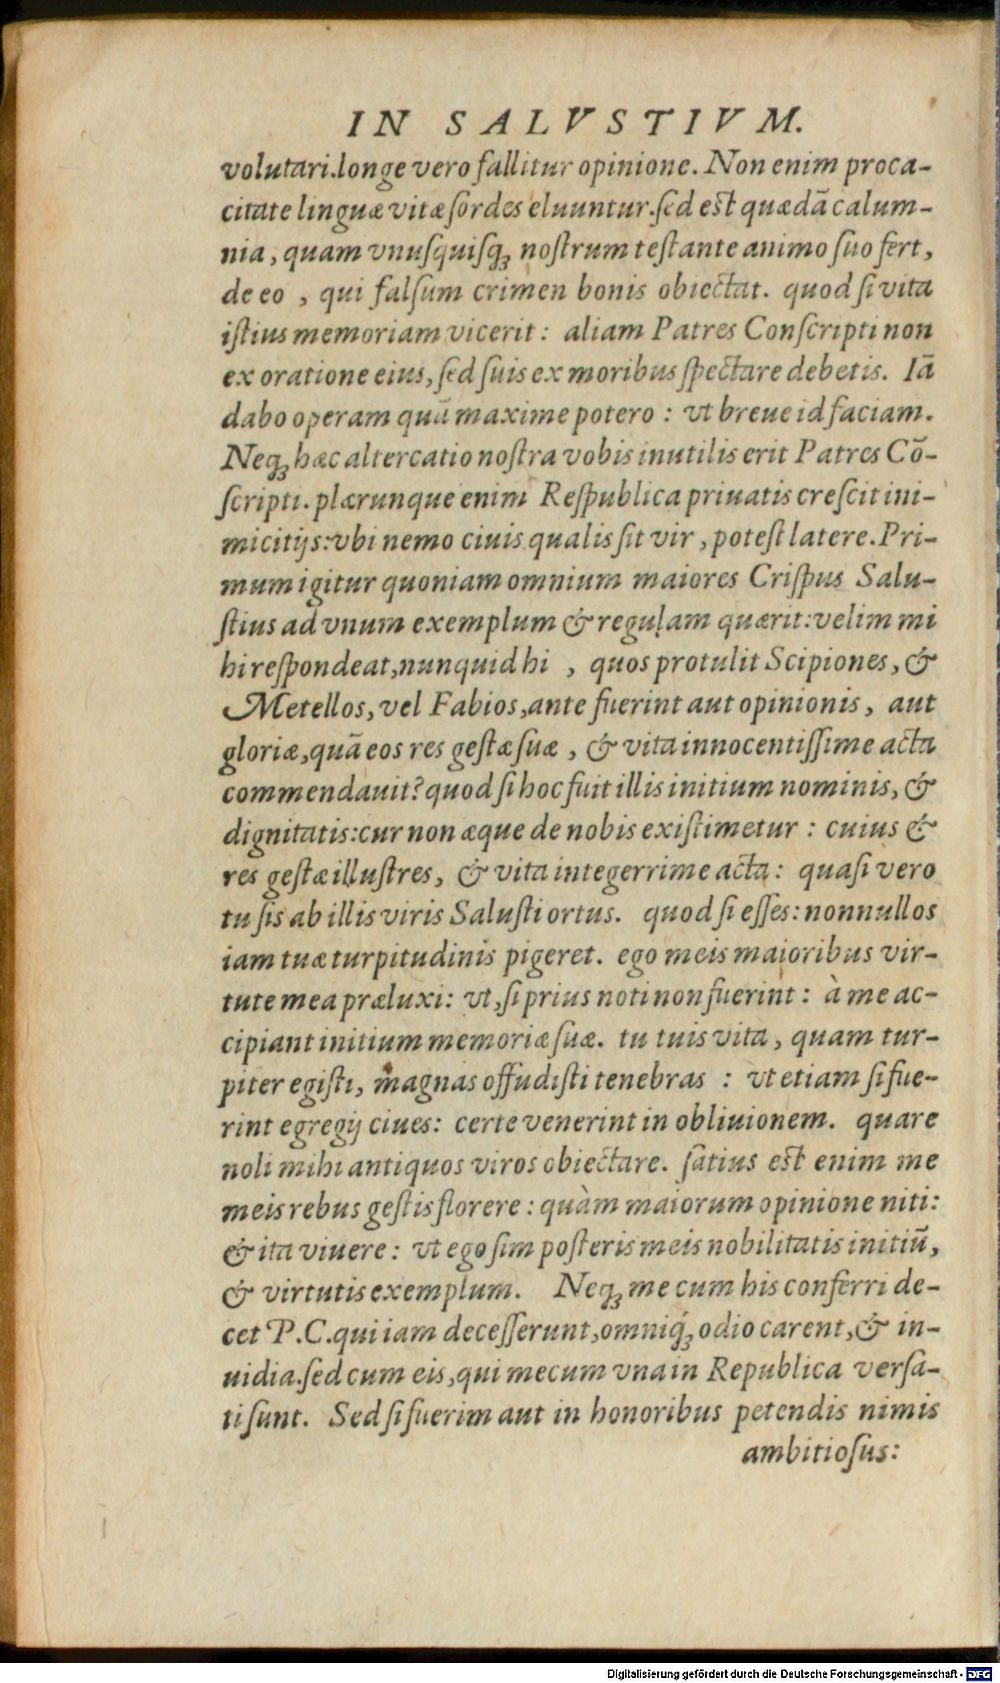 IN SALVSTIVM.
volutari.longe vero fallitur opinione. Non enim proca-
citate linguæ vitæ ſordes eluuntur.ſed eſt quædā calum-
nia, quam vnuſquiſq; noſtrum teſtante animo ſuo fert,
de eo , qui falſum crimen bonis obiectat. quod ſi vita
iſtius memoriam vicerit: aliam Patres Conſcripti non
ex oratione eius, ſed ſuis ex moribus ſpectare debetis. Iā
dabo operam quā maxime potero : vt breue id faciam.
Neq; hæc altercatio noſtra vobis inutilis erit Patres Cō-
ſcripti. plærunque enim Reſpublica priuatis creſcit ini-
micitijs:vbi nemo ciuis qualis ſit vir, poteſt latere. Pri-
mum igitur quoniam omnium maiores Criſpus Salu-
ſtius ad vnum exemplum & regulam quærit:velim mi
hi reſpondeat,nunquid hi , quos protulit Scipiones, &
Metellos, vel Fabios,ante fuerint aut opinionis, aut
gloriæ,quā eos res geſtæ ſuæ , & vita innocentiſſime acta
commendauit? quod ſi hoc fuit illis initium nominis, &
dignitatis:cur non æque de nobis exiſtimetur : cuius &
res geſtæ illuſtres, & vita integerrime acta: quaſi vero
tu ſis ab illis viris Saluſti ortus. quod ſi eſſes: nonnullos
iam tuæ turpitudinis pigeret. ego meis maioribus vir-
tute mea præluxi: vt, ſi prius noti non fuerint : à me ac-
cipiant initium memoriæ ſuæ. tu tuis vita, quam tur-
piter egiſti, magnas offudiſti tenebras : vt etiam ſi fue-
rint egregij ciues: certe venerint in obliuionem. quare
noli mihi antiquos viros obiectare. ſatius eſt enim me
meis rebus geſtis florere : quàm maiorum opinione niti:
& ita viuere: vt ego ſim poſteris meis nobilitatis initiū,
& virtutis exemplum. Neq; me cum his conferri de-
cet P.C.qui iam deceſſerunt,omniq́; odio carent,& in-
uidia.ſed cum eis,qui mecum vna in Republica verſa-
ti ſunt. Sed ſi fuerim aut in honoribus petendis nimis
ambitioſus:
Digitalisierung gefördert durch die Deutsche Forschungsgemeinschaft - DFG